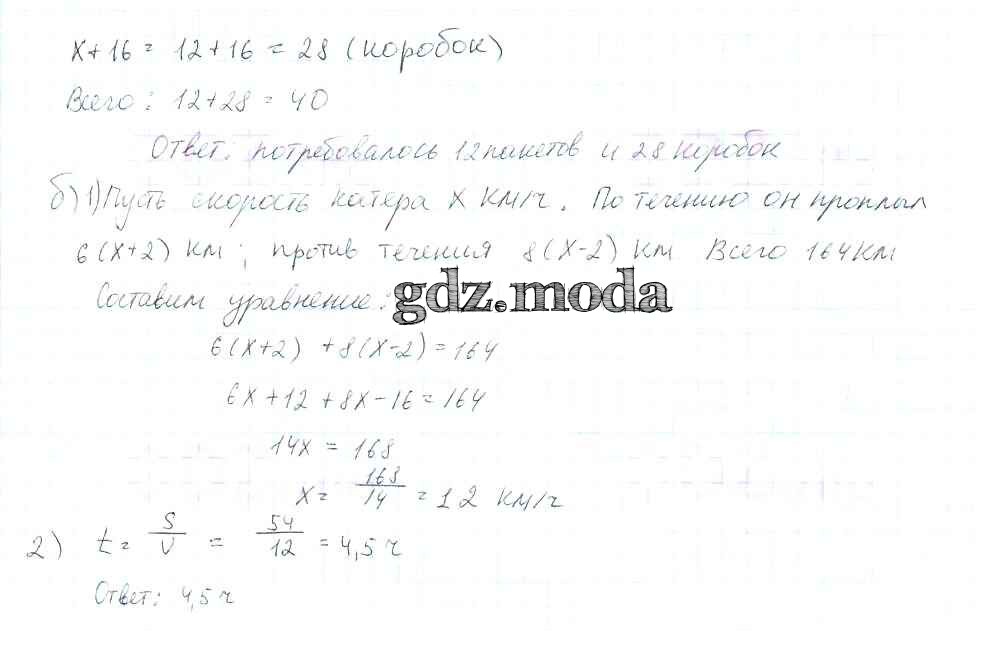 x+16 = 12+16 = 28 (коробок)
Всего: 12+28 = 40
Ответ: потребовалось 12 пакетов и 28 коробок
б) 1) Пусть скорость катера x км/ч. По течению он проплыл
6(x+2) км; против течения 8(x-2) км Всего 164 км
Составим уравнение:
gdz.moda
6(x+2) +8(x-2)=164
6x+12+8x-16=164
14x = 168
x= 168/14 = 12 км/ч
2) t= S/V = 54/12 = 4,5 ч
Ответ: 4,5 ч